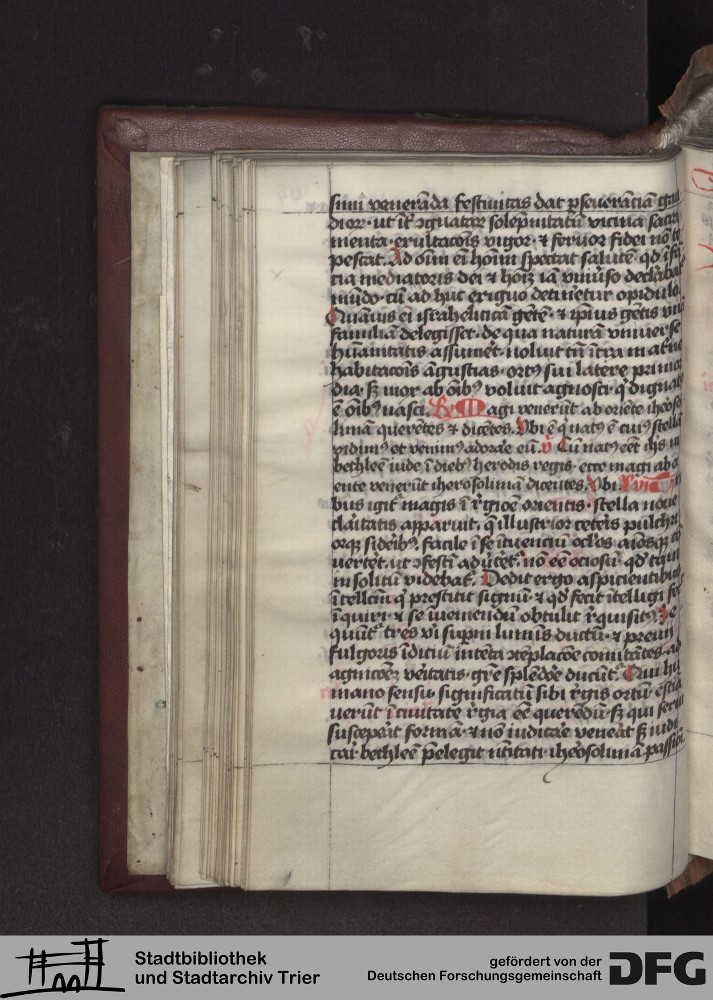 simi venerāda festiuitas dat pseuerātiā
dior ut īt ꝯgnatar solēpnitatū vicina sacra
menta exultacōis vigor ⁊ feruor fidei nō te
pescat Ad oīm eī hoīm spectat salutē qd īfā
tia mediatoris dei ⁊ hoīz iā vniuso declarabat
mūdo cū ad huc exiguo detinetur opidulo
Quāuis eī israheliticā gētē ⁊ ipius gētis vnā
familiā delegisset de qua naturā vniuerse
hūanitatis assumēt noluit tn̄ ītra mat̄ne
habitacōis āgustias ortꝰ sui latere primor
dia sꝫ mox ab oībꝫ voluit agnosci q dignatꝰ
ē oībꝫ nasci Re Magi venerūt ab oriēte iheroso
limā querētes ⁊ dicētes Vbi ē q natꝰ ē cuiꝰ stellā
vidimꝰ et venimꝰ adorare eū v̄ Cū natꝰ eēt ihs in
bethleē iude ī diebꝫ herodis regis ecce magi ab o
riente venerūt iherosolimā dicentes Vbi
bus igit magis ī rgiōe orientis stella noue
claritatis apparuit q illustrior ceteris pulchri
orqꝫ sideribꝫ facile ī se ītuenciū oclos aīosqꝫ cō
uertet ut ꝯfestī aduertēt nō eē ociosū qd tam
insolitū videbat Dedit ergo aspicientibus
ītellcm̄ q prestitit signū ⁊ qd fecit ītelligi fecit
īquiri ⁊ se inueniendū obtulit rquisitꝰ Se
quūt tres viri superni luminis ductū ⁊ previj
fulgoris īdiciū intēta ꝯtēplacōe comitātes ad
agnicōem veritatis gre splēdore ducūt Qui hu
mano sensu significatū sibi rgis ortū estima
uerūt ī ciuitate rgia eē querēdū sꝫ qui serui
susceperat formā ⁊ nō iudicare venerat sꝫ iudi
cari bethleē pelegit natiuitati iherosolimā passioni
Stadtbibliothek
und Stadtarchiv Trier
gefördert von der
Deutschen Forschungsgemeinschaft
DFG